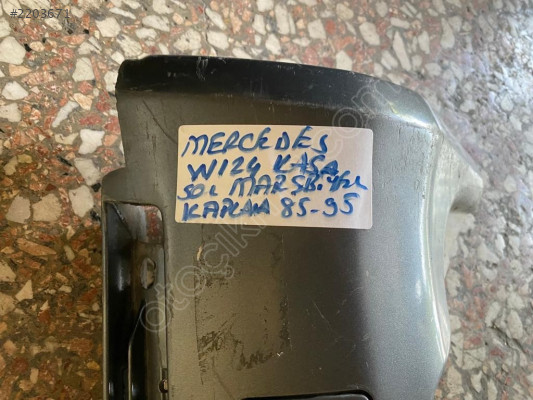 #2203671
MERCEDES
W124 KASA
SOL MARŞB.
KAPLAMA 85-95
otocik